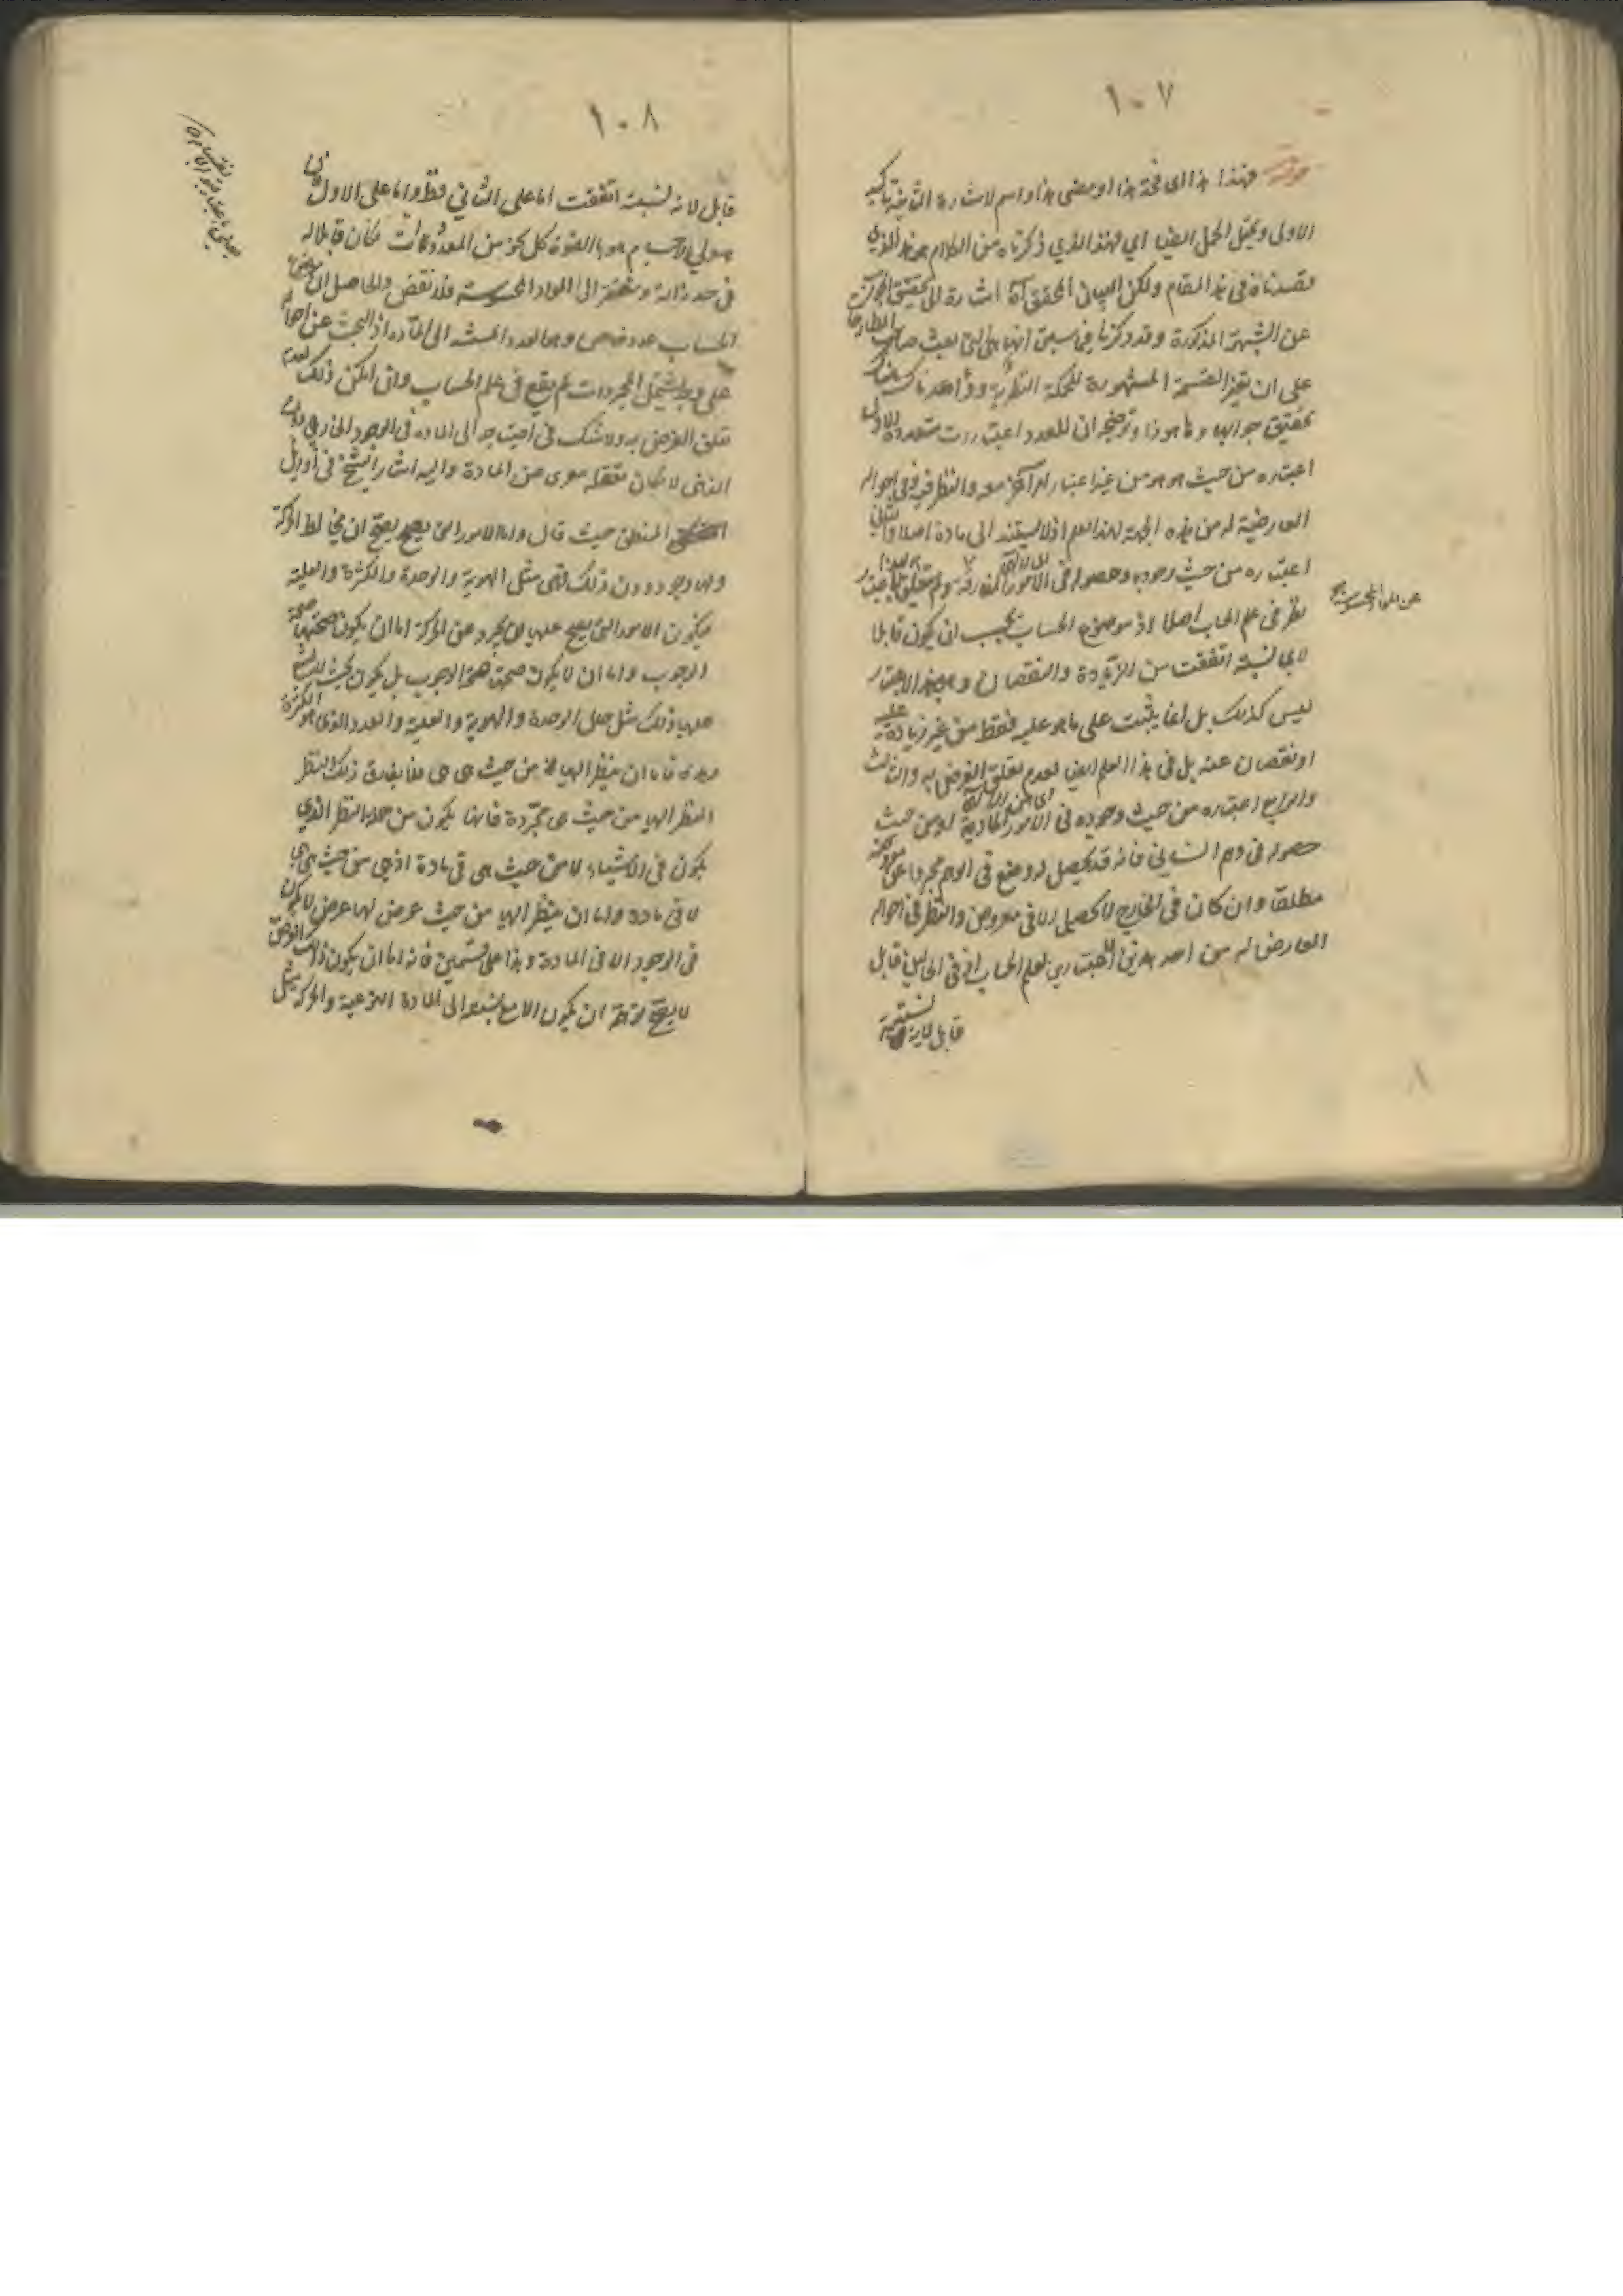 ١٠٧
قوله فهذا هذا اى فخذ هذا او مضى هذا واسم الاشارة الثانية تاكيد
الاولى ويحتمل الحمل ايضا اي فهذا الذي ذكرناه من الكلام هو هذا الذي
قصدناه فى هذا المقام ولكن البيان المحقق آه اشارة الى تحقيق الجواب
عن الشبهة المذكورة وقد ذكرنا فيما سبق انها هى التى بعثت صاحب المطارحات
على ان تغير القسمة المشهورة للحكمة النظرية
تحقيق جوابها وها هو ذا وتوضيحه ان للعدد اعتبارات متعددة الاول
اعتباره من حيث هو هو من غير اعتبار امر آخر معه والنظر فيه وفى احواله
العارضية له من هذه الجهة لهذا العلم اذ لا يستند الى مادة اصلا والثانى
اعتباره من حيث وجوده وحصوله فى الامور المفارقة ولم يتعلق بهذا الاعتبار
عن المواد المحسوسة
نظر فى علم الحساب اصلا اذ موضوع الحساب يجب ان يكون قابلا
لاي نسبة اتفقت من الزيادة والنقصان وهو بهذا الاعتبار
ليس كذلك بل انما يثبت على ما هو عليه فقط من غير زيادة عليه
او نقصان عنه بل فى هذا العلم ايضا لعدم تعلق الغرض به والثالث
والرابع اعتباره من حيث وجوده فى الامور المادية او من حيث
حصوله فى وهم الانسانى فانه قد يحصل له وضع فى الوهم مجردا عن
مطلقا وان كان فى الخارج لا يحصل الا فى معروض والنظر فى احواله
العارض له من احد هذين الاعتبارين لعلم الحساب اذ فى الحالين قابل
قابل لاية نسبة
١٠٨
قابل لاية نسبة اتفقت اما على الثاني فظ واما على الاول
هيولي الاجسام هو بالقوة كل نحو من المعدودات فكان قابلا له
فى حد ذاته ومفتقر الى المواد المحسوسة فلا نقض والحاصل ان موضوع
الحساب عدد خاص وهو العدد المستند الى المادة اذ البحث عن احوال
على وجه يشتمل المجردات لم يقع فى علم الحساب وان امكن ذلك لعدم
تعلق الغرض به ولا شك فى احتياجه الى المادة فى الوجود الخارجي دون
الذهنى لامكان تعقله معرى عن المادة واليه اشار الشيخ فى اوايل
المنطق حيث قال واما الامور التى يصح ان يخالط الحركة
ولها وجود دون ذلك فهى مثل الهوية والوحدة والكثرة والعلية
فيكون الامور التى يصح عليها ان يجرد عن الحركة اما ان يكون صحتها صحة
الوجوب واما ان لا يكون صحتها صحة الوجوب بل يكون بحيث لا يمتنع
عليها ذلك مثل حال الوحدة والهوية والعلية والعدد الذى هو الكثرة
وهذه فاما ان ينظر اليها من حيث هى هى فلا يفارق ذلك النظر
النظر اليها من حيث هى مجردة فانها يكون من جملة النظر الذي
يكون فى الاشياء لا من حيث هى فى مادة اذ هى من حيث هى هى
لا فى مادة واما ان ينظر اليها من حيث عرض لها عرض لا يكون
فى الوجود الا فى المادة وهذا على قسمين فانه اما ان يكون ذلك العرض
لا يصح توهمه ان يكون الا مع نسبة الى المادة النوعية والحركة مثل